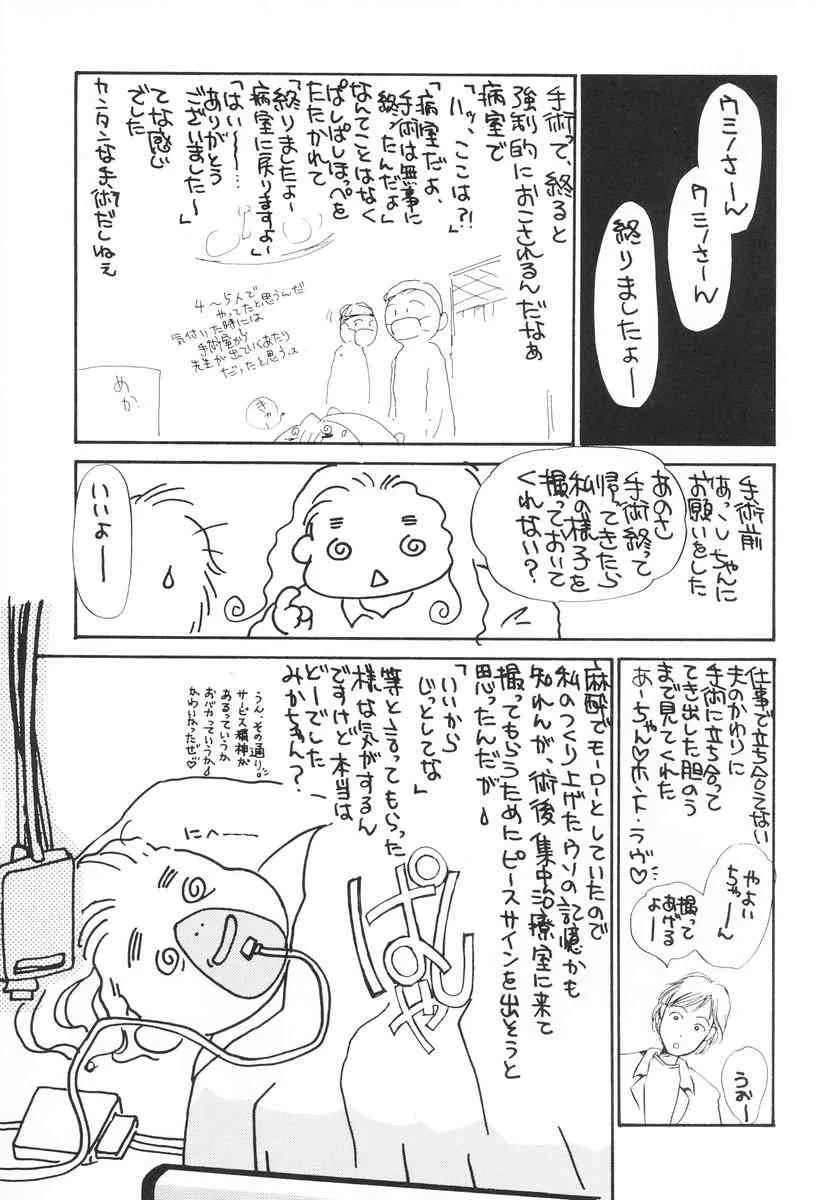 ウミノさーん
ウミノさーん
終りましたよー
手術って、終ると
強制的におこされるんだなぁ
病室で
「ハッ、ここは?!」
「病室だよ、
手術は無事に
終ったんだよ」
なんてことはなく
ぱしぱしほっぺを
たたかれて
「終りましたよ〜
病室に戻りますよ〜」
「はい〜〜…
ありがとう
ございました〜」
てな感じ
でした
カンタンな手術だしねぇ
4〜5人で
やってたと思うんだ
気付いた時には
手術室から
先生が出ていくあたり
だったと思うっス
きゃー
めか
手術前
あっこちゃんに
お願いをした
あのさ
手術終って
帰ってきたら
私の様子を
撮っておいて
くれない?
いいよー
仕事で立ち会えない
夫のかわりに
手術に立ち合って
てき出した胆のう
まで見てくれた
あーちゃん♡ホント・ラヴ♡
やよい
ちゃーん
撮って
あげる
よー
うおー
麻酔でモーローとしていたので
私のつくり上げたウソの記憶かも
知れんが、術後、集中治療室に来て
撮ってもらうためにピースサインを出そうと
思ったんだが
「いいから
じっとしてな」
等と言ってもらった
様な気がするん
ですけど本当は
どーでした
みかちゃん?
うん、その通り。
サービス精神が
あるっていうか
おバカっていうか
かわいかったぜ♡
にへ――
ぱしゃり